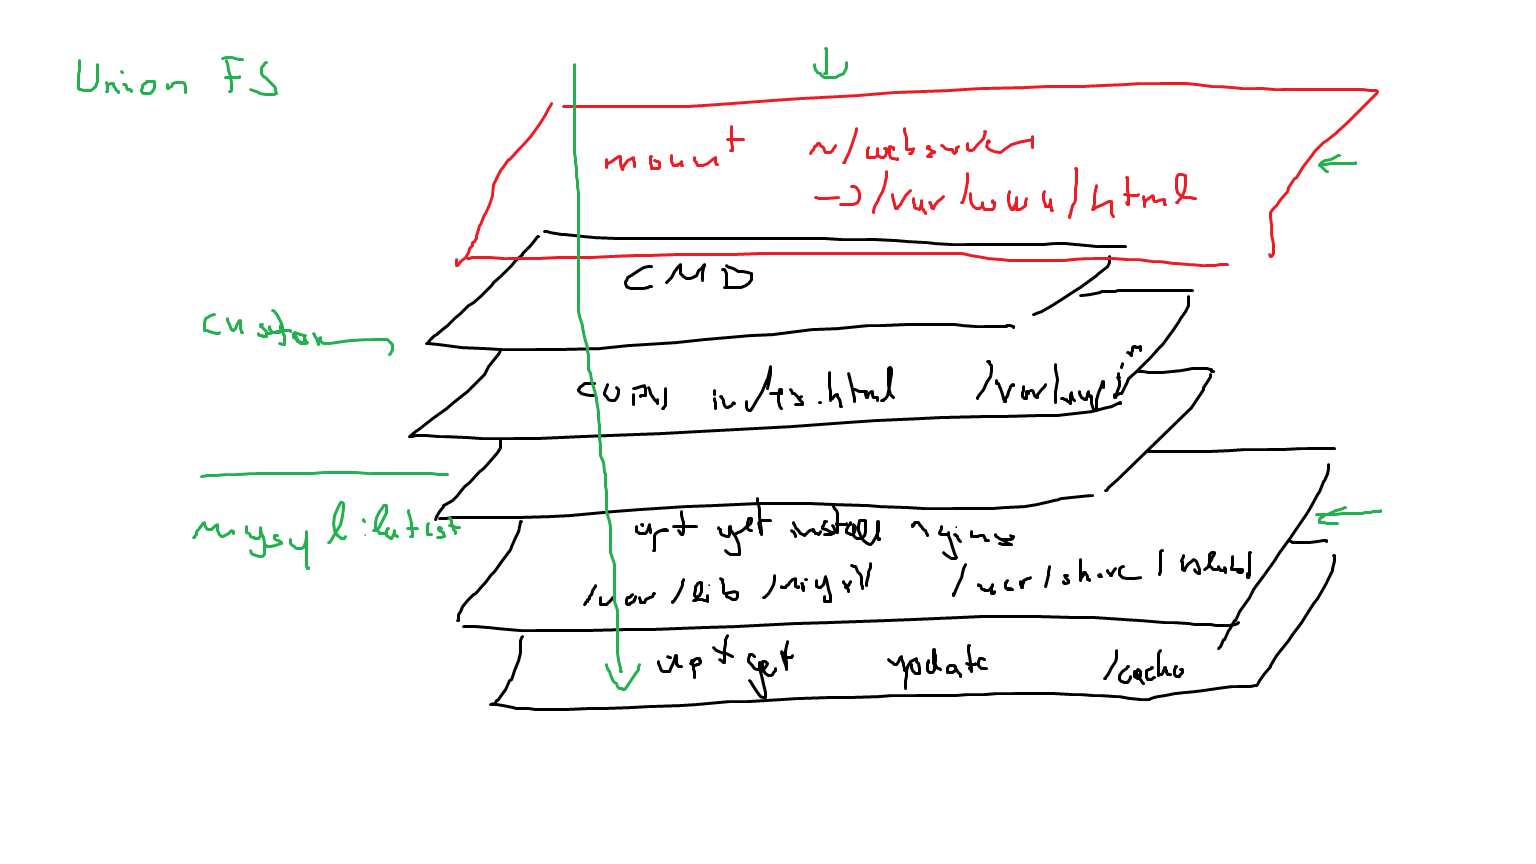 Union FS
mount ~/webserver
->/var/www/html
CMD
custom
COPY index.html /var/
mysql:latest
apt get install nginx
/var/lib/mysql /usr/share/
apt get update /cache